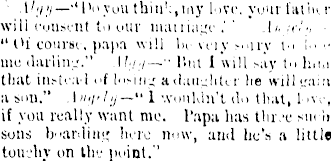 Algy—"Do you think, my love, your father
will consent to our marriage?" Angely—
"Of course, papa will be very sorry to lose
me darling." Algy—"But I will say to him
that instead of losing a daughter he will gain
a son." Angely—"I wouldn't do that, love,
if you really want me. Papa has three such
sons boarding here now, and he's a little
touchy on the point."